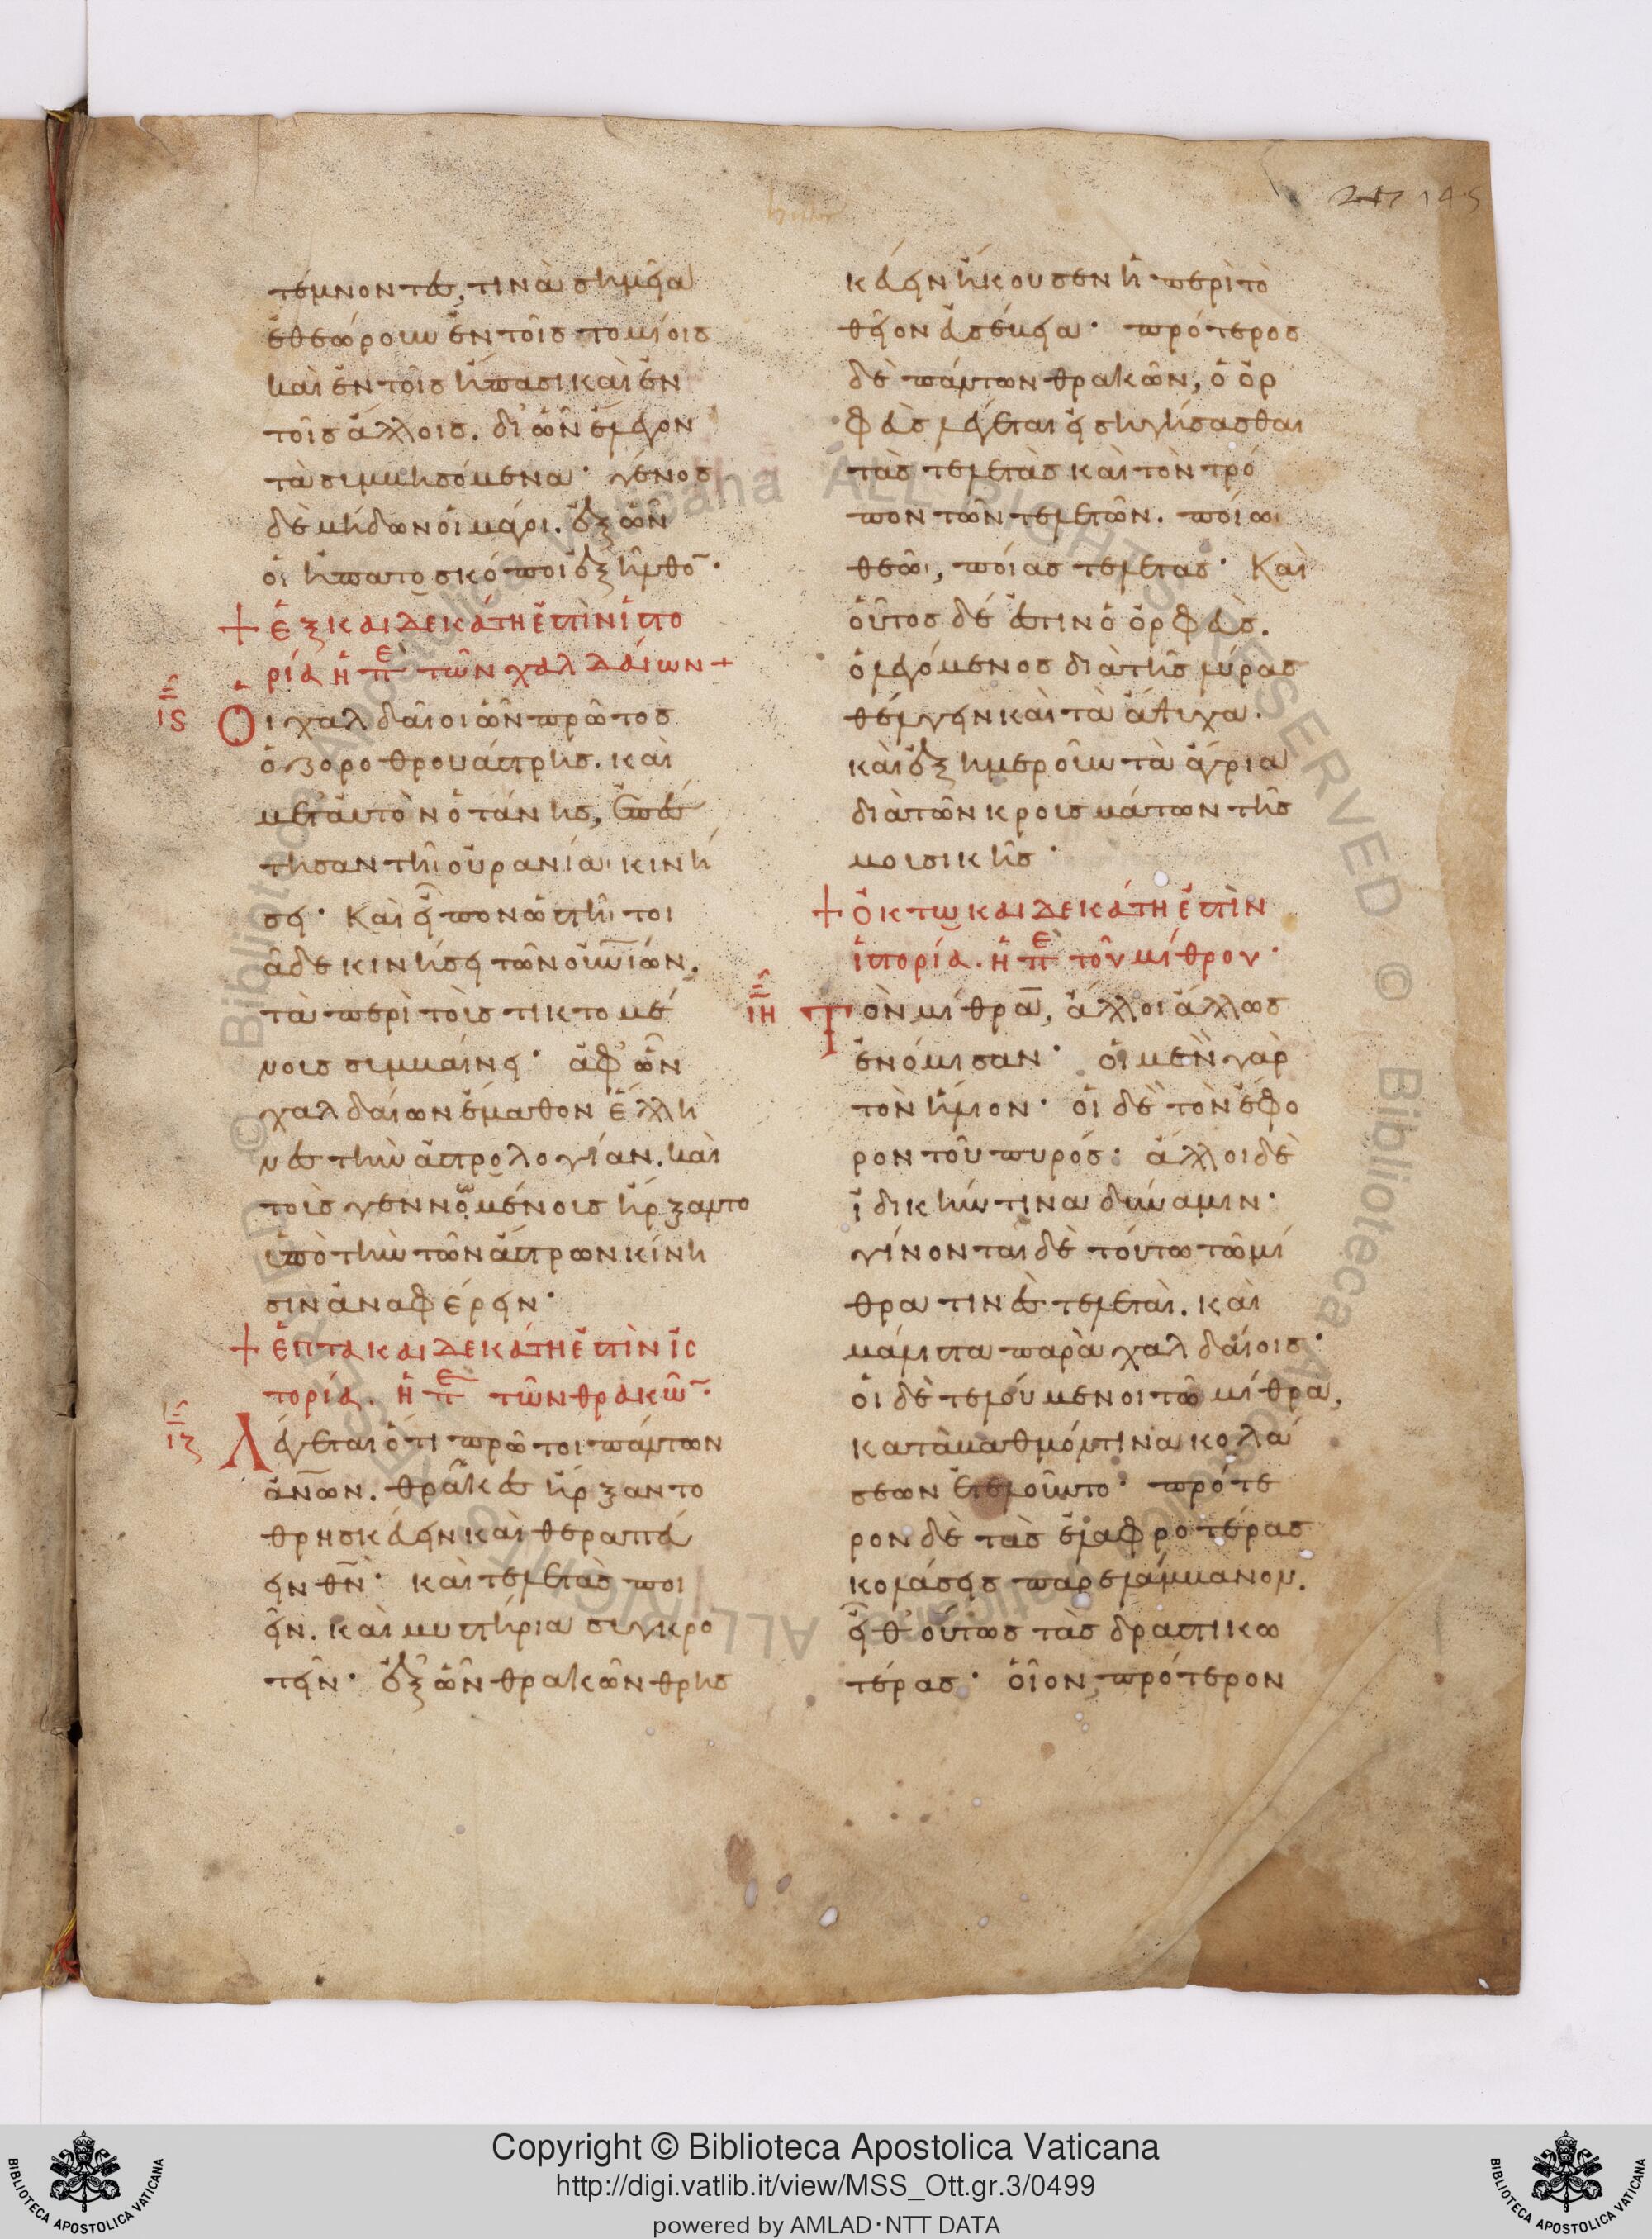 247 145
τέμνοντες, τινὰ σημεῖα
ἐθεώρουν ἐν τοῖς τομίοις
καὶ ἐν τοῖς ἥπασι καὶ ἐν
τοῖς ἄλλοις. δι' ὧν ἔλεγον
τὰ συμβησόμενα· γένος
δὲ μήδων οἱ μάγοι. ἐξ ὧν
οἱ ἡπατοσκόποι ἐξῆλθο̅·
+ ἑξκαιδεκάτη ἐστὶν ἱστο
ρία ἡ πε τῶν χαλδαίων +
ις Οἱ χαλδαῖοι ὧν πρῶτος
ὁ ζοροθρουάστρης. καὶ
μετ' αὐτὸν ὀτάνης, ἐπέ
στησαν τῆ οὐρανία κινή
σει· Καὶ εἶπον ὡς ἡ τοι
άδε κίνησει τῶν οὐνίων,
τὰ περὶ τοῖς τικτομέ
νοις συμβαίνει· ἀφ' ὧν
χαλδαίων ἔμαθον ἕλλη
νες τὴν ἀστρολογίαν. καὶ
τοῖς γεννομένοις ἤρξαντο
ὑπὸ τὴν τῶν ἄστρων κίνη
σιν ἀναφέρειν·
+ ἑπτακαιδεκάτη ἐστὶν ἱσ
τορία. ἡ πε τῶν θρακῶ̅·
ιζ Λέγεται ὅτι πρῶτοι πάντων
ἀν̅ων. θρᾶκες ἤρξαντο
θρησκεύειν καὶ θεραπεύ
ειν θν̅· καὶ τελετὰς ποι
εῖν. καὶ μυστήρια συγκρο
τεῖν· ἐξ ὧν θρακῶν θρης
κεύειν ἤκουσεν ἡ περὶ τὸ
θεῖον εὐσέβεια· πρότερος
δὲ πάντων θρακῶν, ὁ ὀρ
φεὺς λέγεται εἰσηγήσασθαι
τὰς τελετὰς καὶ τὸν τρό
πον τῶν τελετῶν. ποίωι
θεῶι, ποίας τελετας· Καὶ
οὗτος δέ ἐστιν ὁ ὀρφεὺς.
ὁ λεγόμενος διὰ τῆς λύρας
θέλγειν καὶ τὰ ἄψυχα.
καὶ ἐξημεροῖν τὰ ἄγρια
διὰ τῶν κροισμάτων τῆς
μοισικῆς·
+ ὀκτωκαιδεκάτη ἐστὶν
ἱστορία. ἡ πε τοῦ μίθρου·
ιη Τὸν μίθρα̅, ἄλλοι ἄλλως
ἐνόμισαν· οἱ μὲν γὰρ
τὸν ἥλιον· οἱ δὲ τὸν ἔφο
ρον τοῦ πυρός· ἄλλοι δὲ
ἰδικήν τινα δύναμιν·
γίνονται δὲ τούτω τῶ μί
θρα τινὲς τελεταὶ. καὶ
μάλιστα παρὰ χαλδαίοις·
οἱ δὲ τελούμενοι τῶ μίθρα,
κατὰ βαθμόν τινα κολά
σεων ἐτελοῦντο· πρότε
ρον δὲ τὰς ἐλαφροτέρας
κολάσεις παρελάμβανον.
εἶθ' οὕτως τὰς δραστικω
τέρας· οἷον, πρότερον
Copyright © Biblioteca Apostolica Vaticana
http://digi.vatlib.it/view/MSS_Ott.gr.3/0499
powered by AMLAD·NTT DATA
BIBLIOTECA APOSTOLICA VATICANA
BIBLIOTECA APOSTOLICA VATICANA